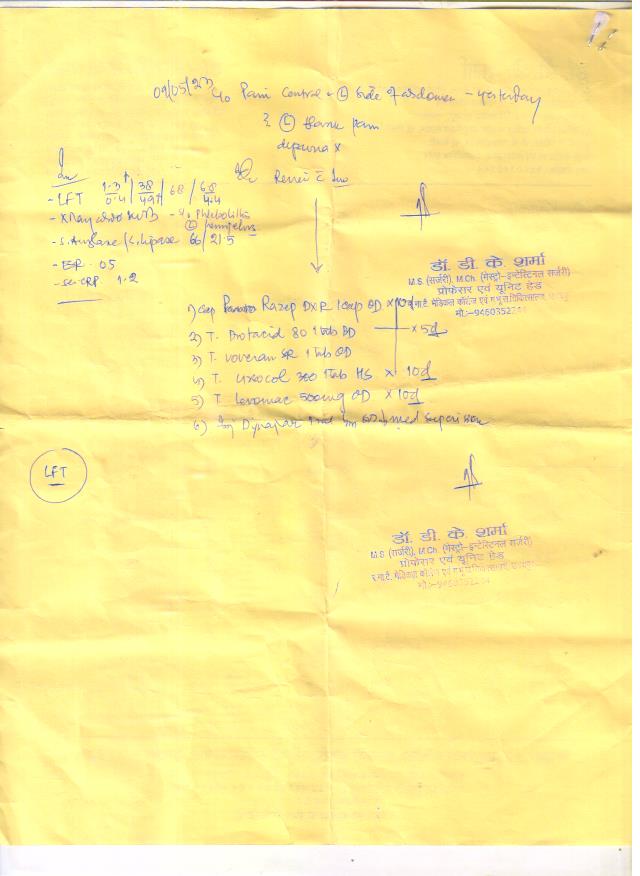 09/05/23 c/o Pain Central & Ⓛ side of abdomen - yesterday
& Ⓛ flank pain
Inv
Adv Review c̄ Inv
- LFT 1.3↑/0.4 / 38/49↑ / 68 / 6.8/4.4
- Xray - s/o phleboliths
Ⓛ hemipelvis
- S. Amylase / S. Lipase 66 / 21.5
- ESR 05
- se CRP 1.2
डॉ. डी. के. शर्मा
M.S. (सर्जरी), M.Ch. (गेस्ट्रो-इन्टेस्टिनल सर्जरी)
प्रोफेसर एवं यूनिट हेड
मेडिकल कॉलेज एवं
मो.:-9460352
1) Cap Razep DXR 1 Cap OD × 10d
2) T. Protacid 80 1 tab BD × 5d
3) T. Voveran SR 1 Tab OD
4) T. Ursocol 300 1 Tab HS × 10d
5) T. Levomac 500mg OD × 10d
6) Inj Dynapar med supervision
LFT
डॉ. डी. के. शर्मा
M.S. (सर्जरी), M.Ch. (गेस्ट्रो-इन्टेस्टिनल सर्जरी)
प्रोफेसर एवं यूनिट हेड
मेडिकल कॉलेज एवं